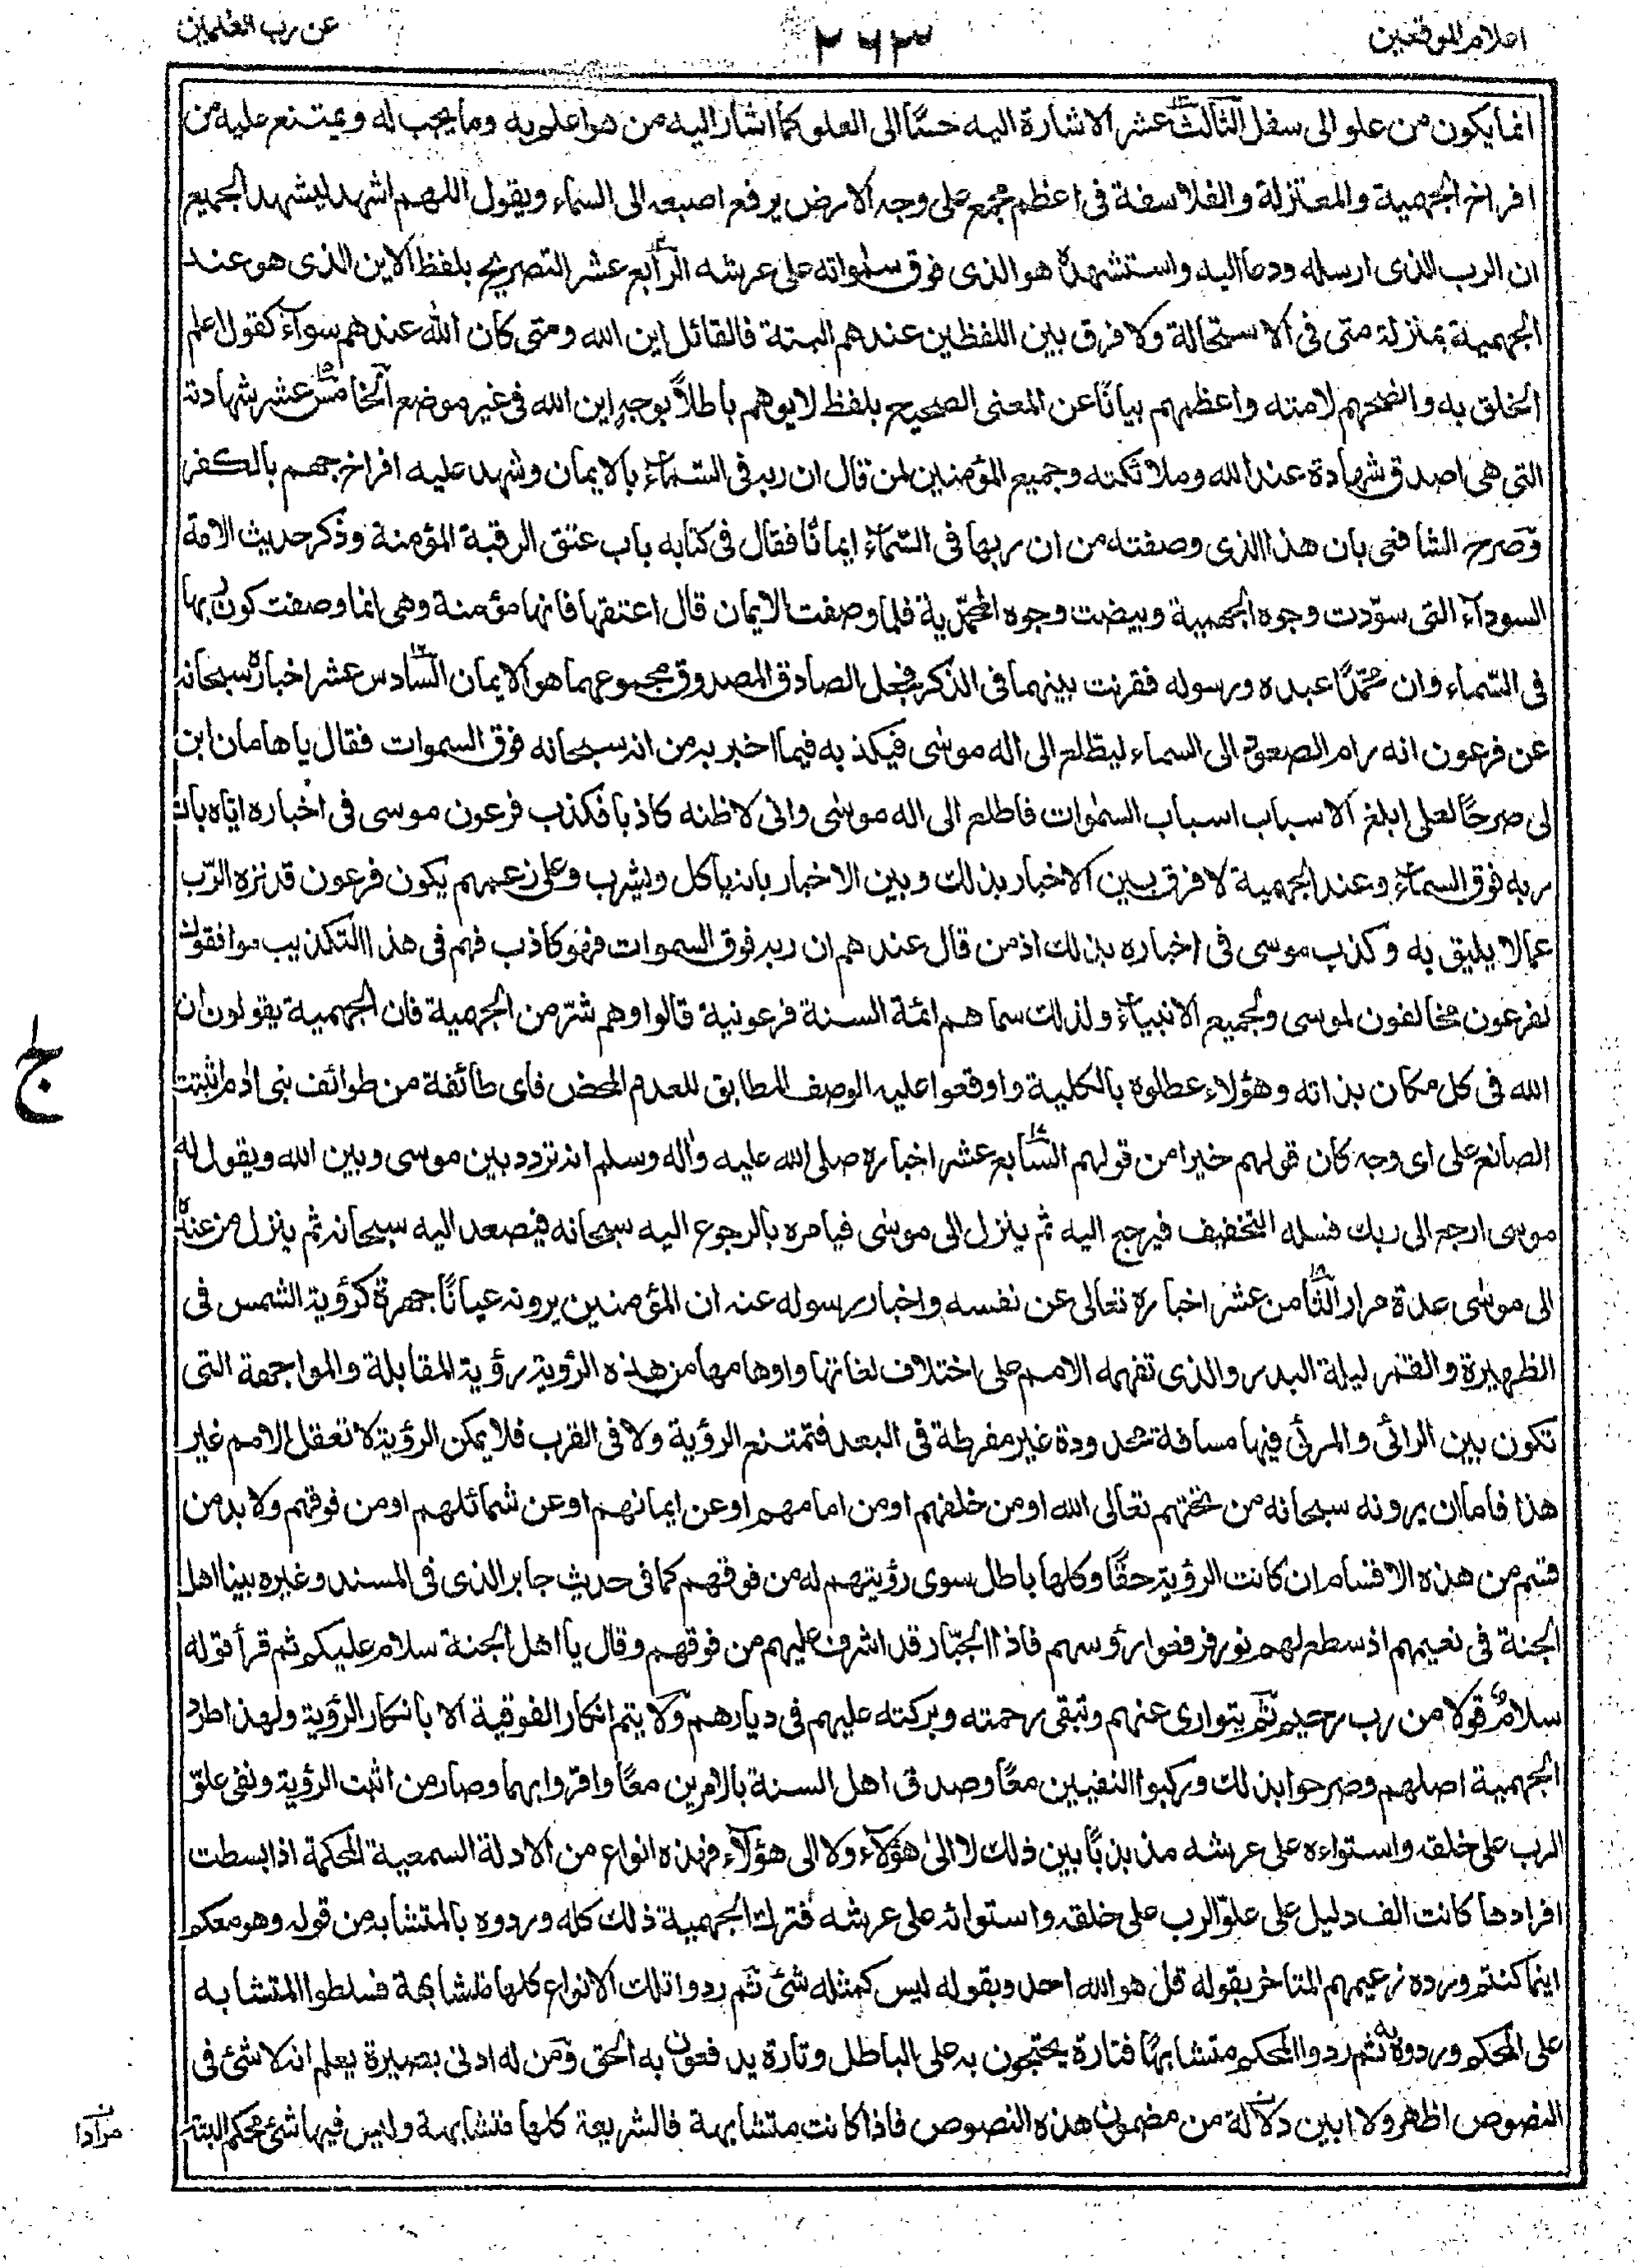 اعلام الموقعين
٢٦٣
عن رب العلمين
انما يكون من علو الى سفل الثالث عشر الاشارة اليه حسًّا الى العلو كما اشار اليه من هو اعلم به وما يجب له ويمتنع عليه من
افراخ الجهمية والمعتزلة والفلاسفة فى اعظم مجمع على وجه الارض يرفع اصبعه الى السماء ويقول اللهم اشهد ليشهد الجميع
ان الرب الذى ارسله ودعا اليه واستشهده هو الذى فوق سلمواته على عرشه الرابع عشر التصريح بلفظ الاين الذى هو عند
الجهمية بمنزلة متى فى الاستحالة ولا فرق بين اللفظين عندهم البتة فالقائل اين الله ومتى كان الله عندهم سوآء كقول اعلم
الخلق به وانصحهم لامته واعظمهم بيانًا عن المعنى الصحيح بلفظ لا يوهم باطلاً بوجه اين الله فى غير موضع الخامس عشر شهادته
التى هى اصدق شهادة عند الله وملائكته وجميع المؤمنين لمن قال ان ربه فى السماء بالايمان وشهد عليه افراخ جهم بالكفر
وصرح الشافعى بان هذا الذى وصفته من ان ربها فى السّماء ايمانًا فقال فى كتابه باب عتق الرقبة المؤمنة وذكر حديث الامة
السودآء التى سوّدت وجوه الجهمية وبيضت وجوه المحمّدية فلما وصفت الايمان قال اعتقها فانها مؤمنة وهى انما وصفت كون ربها
فى السّماء وان محمّدًا عبده ورسوله فقرنت بينهما فى الذكر فجعل الصادق المصدوق مجموعهما هو الايمان السّادس عشر اخباره سبحانه
عن فرعون انه رام الصعود الى السماء ليطلع الى اله موسى فيكذبه فيما اخبر به من انه سبحانه فوق السموات فقال يا هامان ابن
لى صرحًا لعلى ابلغ الاسباب اسباب السمٰوات فاطلع الى اله موسٰى وانى لاظنه كاذبا فكذب فرعون موسى فى اخباره اياه بان
ربه فوق السماء وعند الجهمية لا فرق بين الاخبار بذلك وبين الاخبار بانه ياكل ويشرب وعلى زعمهم يكون فرعون قد نزه الرّب
عما لا يليق به وكذب موسى فى اخباره بذلك اذ من قال عندهم ان ربه فوق السموات فهو كاذب فهم فى هذا التكذيب موافقون
لفرعون مخالفون لموسى ولجميع الانبياء ولذلك سماهم ائمة السنة فرعونية قالوا وهم شرّ من الجهمية فان الجهمية يقولون ان
الله فى كل مكان بذاته وهؤلاء عطلوه بالكلية واوقعوا عليه الوصف المطابق للعدم المحض فاى طائفة من طوائف بنى اٰدم اثبتت
الصانع على اى وجه كان قولهم خيرا من قولهم السّابع عشر اخباره صلى الله عليه واٰله وسلم انه تردد بين موسى وبين الله ويقول له
موسى ارجع الى ربك فسله التخفيف فيرجع اليه ثم ينزل الى موسٰى فيامره بالرجوع اليه سبحانه فيصعد اليه سبحانه ثم ينزل من عنده
الى موسٰى عدة مرار الثّامن عشر اخباره تعالى عن نفسه واخبار رسوله عنه ان المؤمنين يرونه عيانًا جهرة كرؤية الشمس فى
الظهيرة والقمر ليلة البدر والذى تفهمه الامم على اختلاف لغاتها واوهامها من هذه الرؤية رؤية المقابلة والمواجهة التى
تكون بين الرائى والمرئى فيها مسافة محدودة غير مفرطة فى البعد فتمتنع الرؤية ولا فى القرب فلا يمكن الرؤية لا تعقل الامم غير
هذا فاما ان يرونه سبحانه من تحتهم تعالى الله او من خلفهم او من امامهم او عن ايمانهم او عن شمائلهم او من فوقهم ولا بد من
قسم من هذه الاقسام ان كانت الرؤية حقًّا وكلها باطل سوى رؤيتهم له من فوقهم كما فى حديث جابر الذى فى المسند وغيره بينا اهل
الجنة فى نعيمهم اذ سطع لهم نور فرفعوا رؤوسهم فاذا الجبّار قد اشرف عليهم من فوقهم وقال يا اهل الجنة سلام عليكم ثم قرأ قوله
سلامٌ قولا من رب رحيم ثم يتوارى عنهم وتبقى رحمته وبركته عليهم فى ديارهم ولا يتم انكار الفوقية الا بانكار الرؤية ولهذا طرد
الجهمية اصلهم وصرحوا بذلك وركبوا النفيين معًا وصدق اهل السنة بالامرين معًا واقروا بهما وصار من اثبت الرؤية ونفى علوّ
الرب على خلقه واستواءه على عرشه مذبذبًا بين ذلك لا الىٰ هؤلآء ولا الى هؤلآء فهذه انواع من الادلة السمعية المحكمة اذا بسطت
افرادها كانت الف دليل على علوّ الرب على خلقه واستوائه على عرشه فترك الجهمية ذلك كله وردوه بالمتشابه من قوله وهو معكم
اينما كنتم ورده زعيمهم المتاخر بقوله قل هو الله احد وبقوله ليس كمثله شئ ثم ردوا تلك الانواع كلها متشابهة فسلطوا المتشابه
على المحكم وردوه به ثم ردوا المحكم متشابهًا فتارة يحتجون به على الباطل وتارة يدفعون به الحق ومن له ادنى بصيرة يعلم انه لا شئ فى
النصوص اظهر ولا ابين دلالة من مضمون هذه النصوص فاذا كانت متشابهة فالشريعة كلها متشابهة وليس فيها شئ محكم البتة